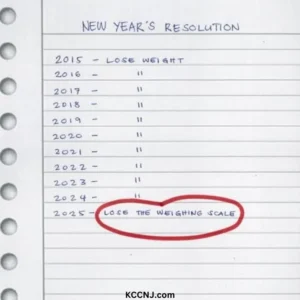 NEW YEAR'S RESOLUTION
2015 - LOSE WEIGHT
2016 - "
2017 - "
2018 - "
2019 - "
2020 - "
2021 - "
2022 - "
2023 - "
2024 - "
2025 - LOSE THE WEIGHING SCALE
KCCNJ.com